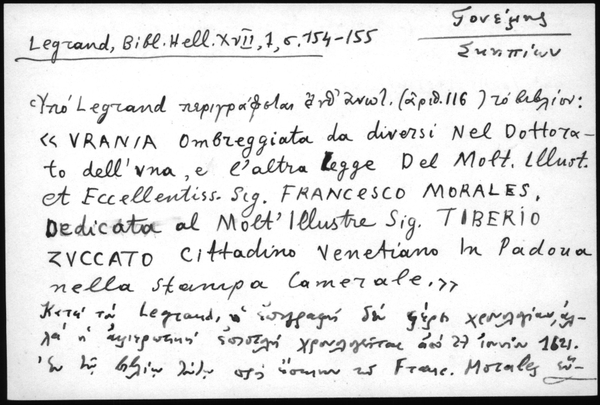 Γονέμης
Σκηπίων
Legrand, Bibl. Hell. XVII, 1, σ. 154-155
Ὑπό Legrand περιγράφεται (ἀριθ. 116) τό βιβλίον:
«VRANIA Ombreggiata da diversi Nel Dottora-
to dell'vna, e l'altra Legge Del Molt. Illust.
et Eccellentiss. Sig. FRANCESCO MORALES,
Dedicata al Molt'Illustre Sig. TIBERIO
ZVCCATO Cittadino Venetiano In Padoua
nella Stampa Camerale.»
Κατά τόν Legrand, ἡ ἐπιγραφή δέν φέρει χρονολογίαν, ἀλ-
λά ἡ ἀφιερωτική ἐπιστολή χρονολογεῖται ἀπό 27 Ἰουνίου 1621.
Ἐν τῷ βιβλίῳ τούτῳ πρός ἔπαινον τοῦ Franc. Morales εὕ-